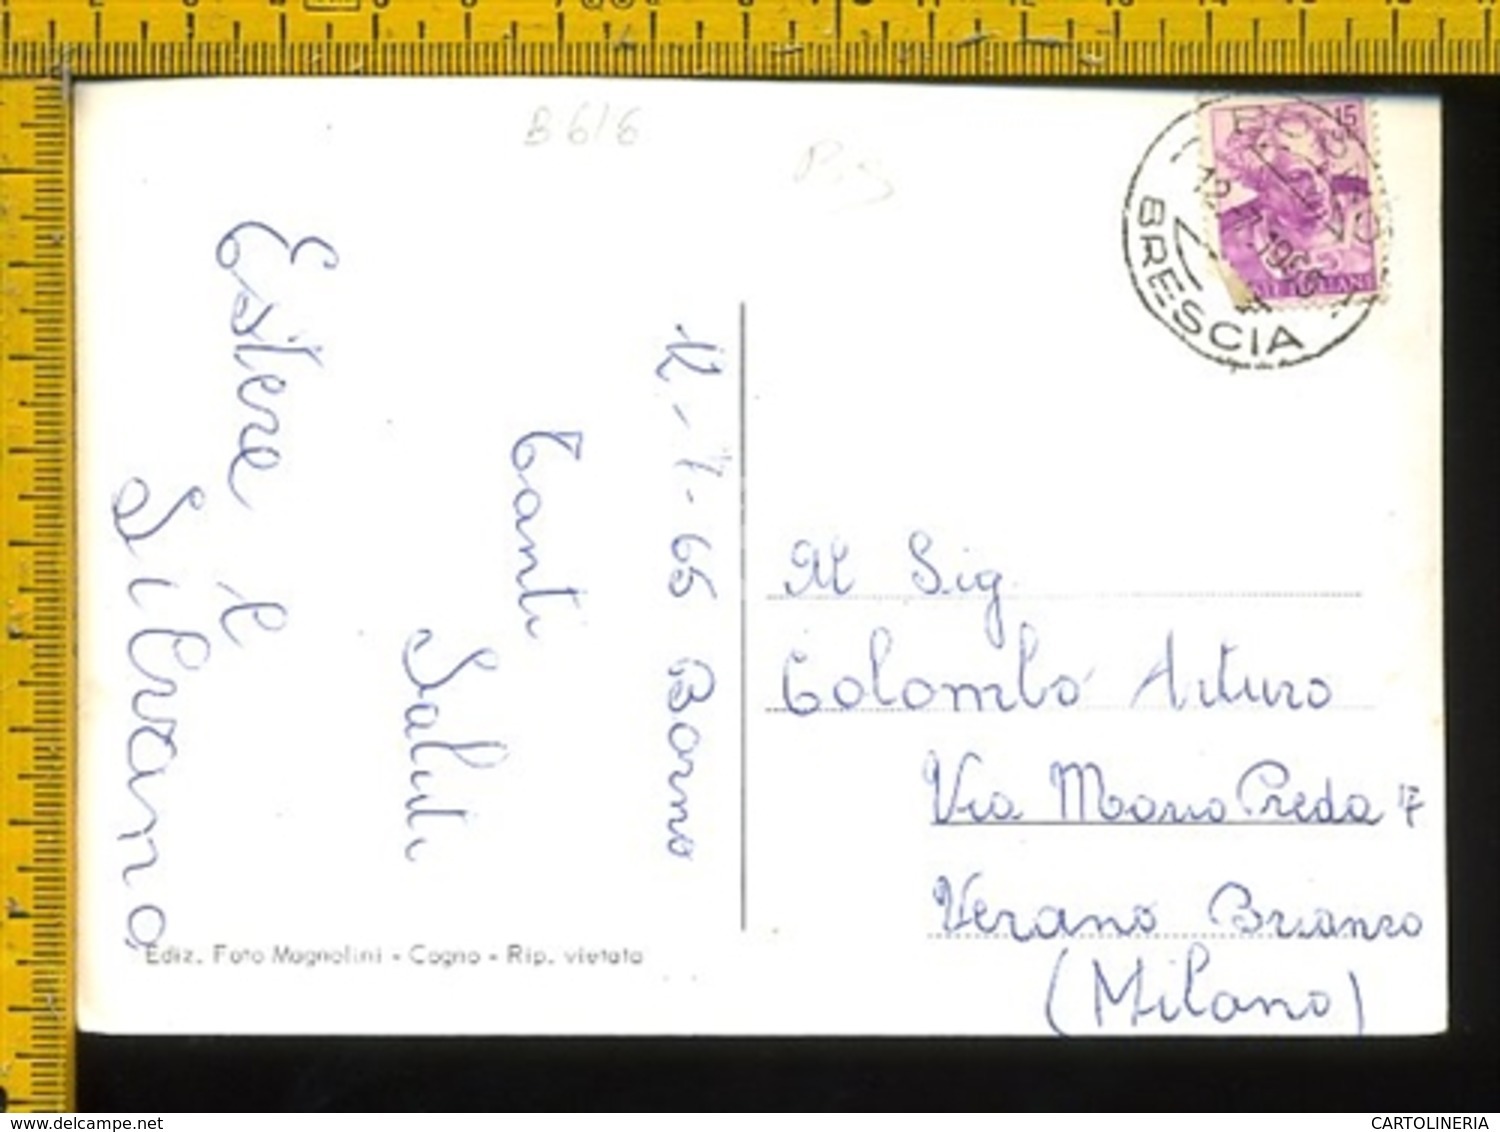 B 616
15
BORNO
12.7.1965
BRESCIA
12-7-65 Borno
Tanti
Saluti
Estere e
Silvano
Al Sig.
Colombo Arturo
Via Mario Preda 17
Verano Brianza
(Milano)
Ediz. Foto Magnolini - Cogno - Rip. vietata
www.delcampe.net
CARTOLINERIA